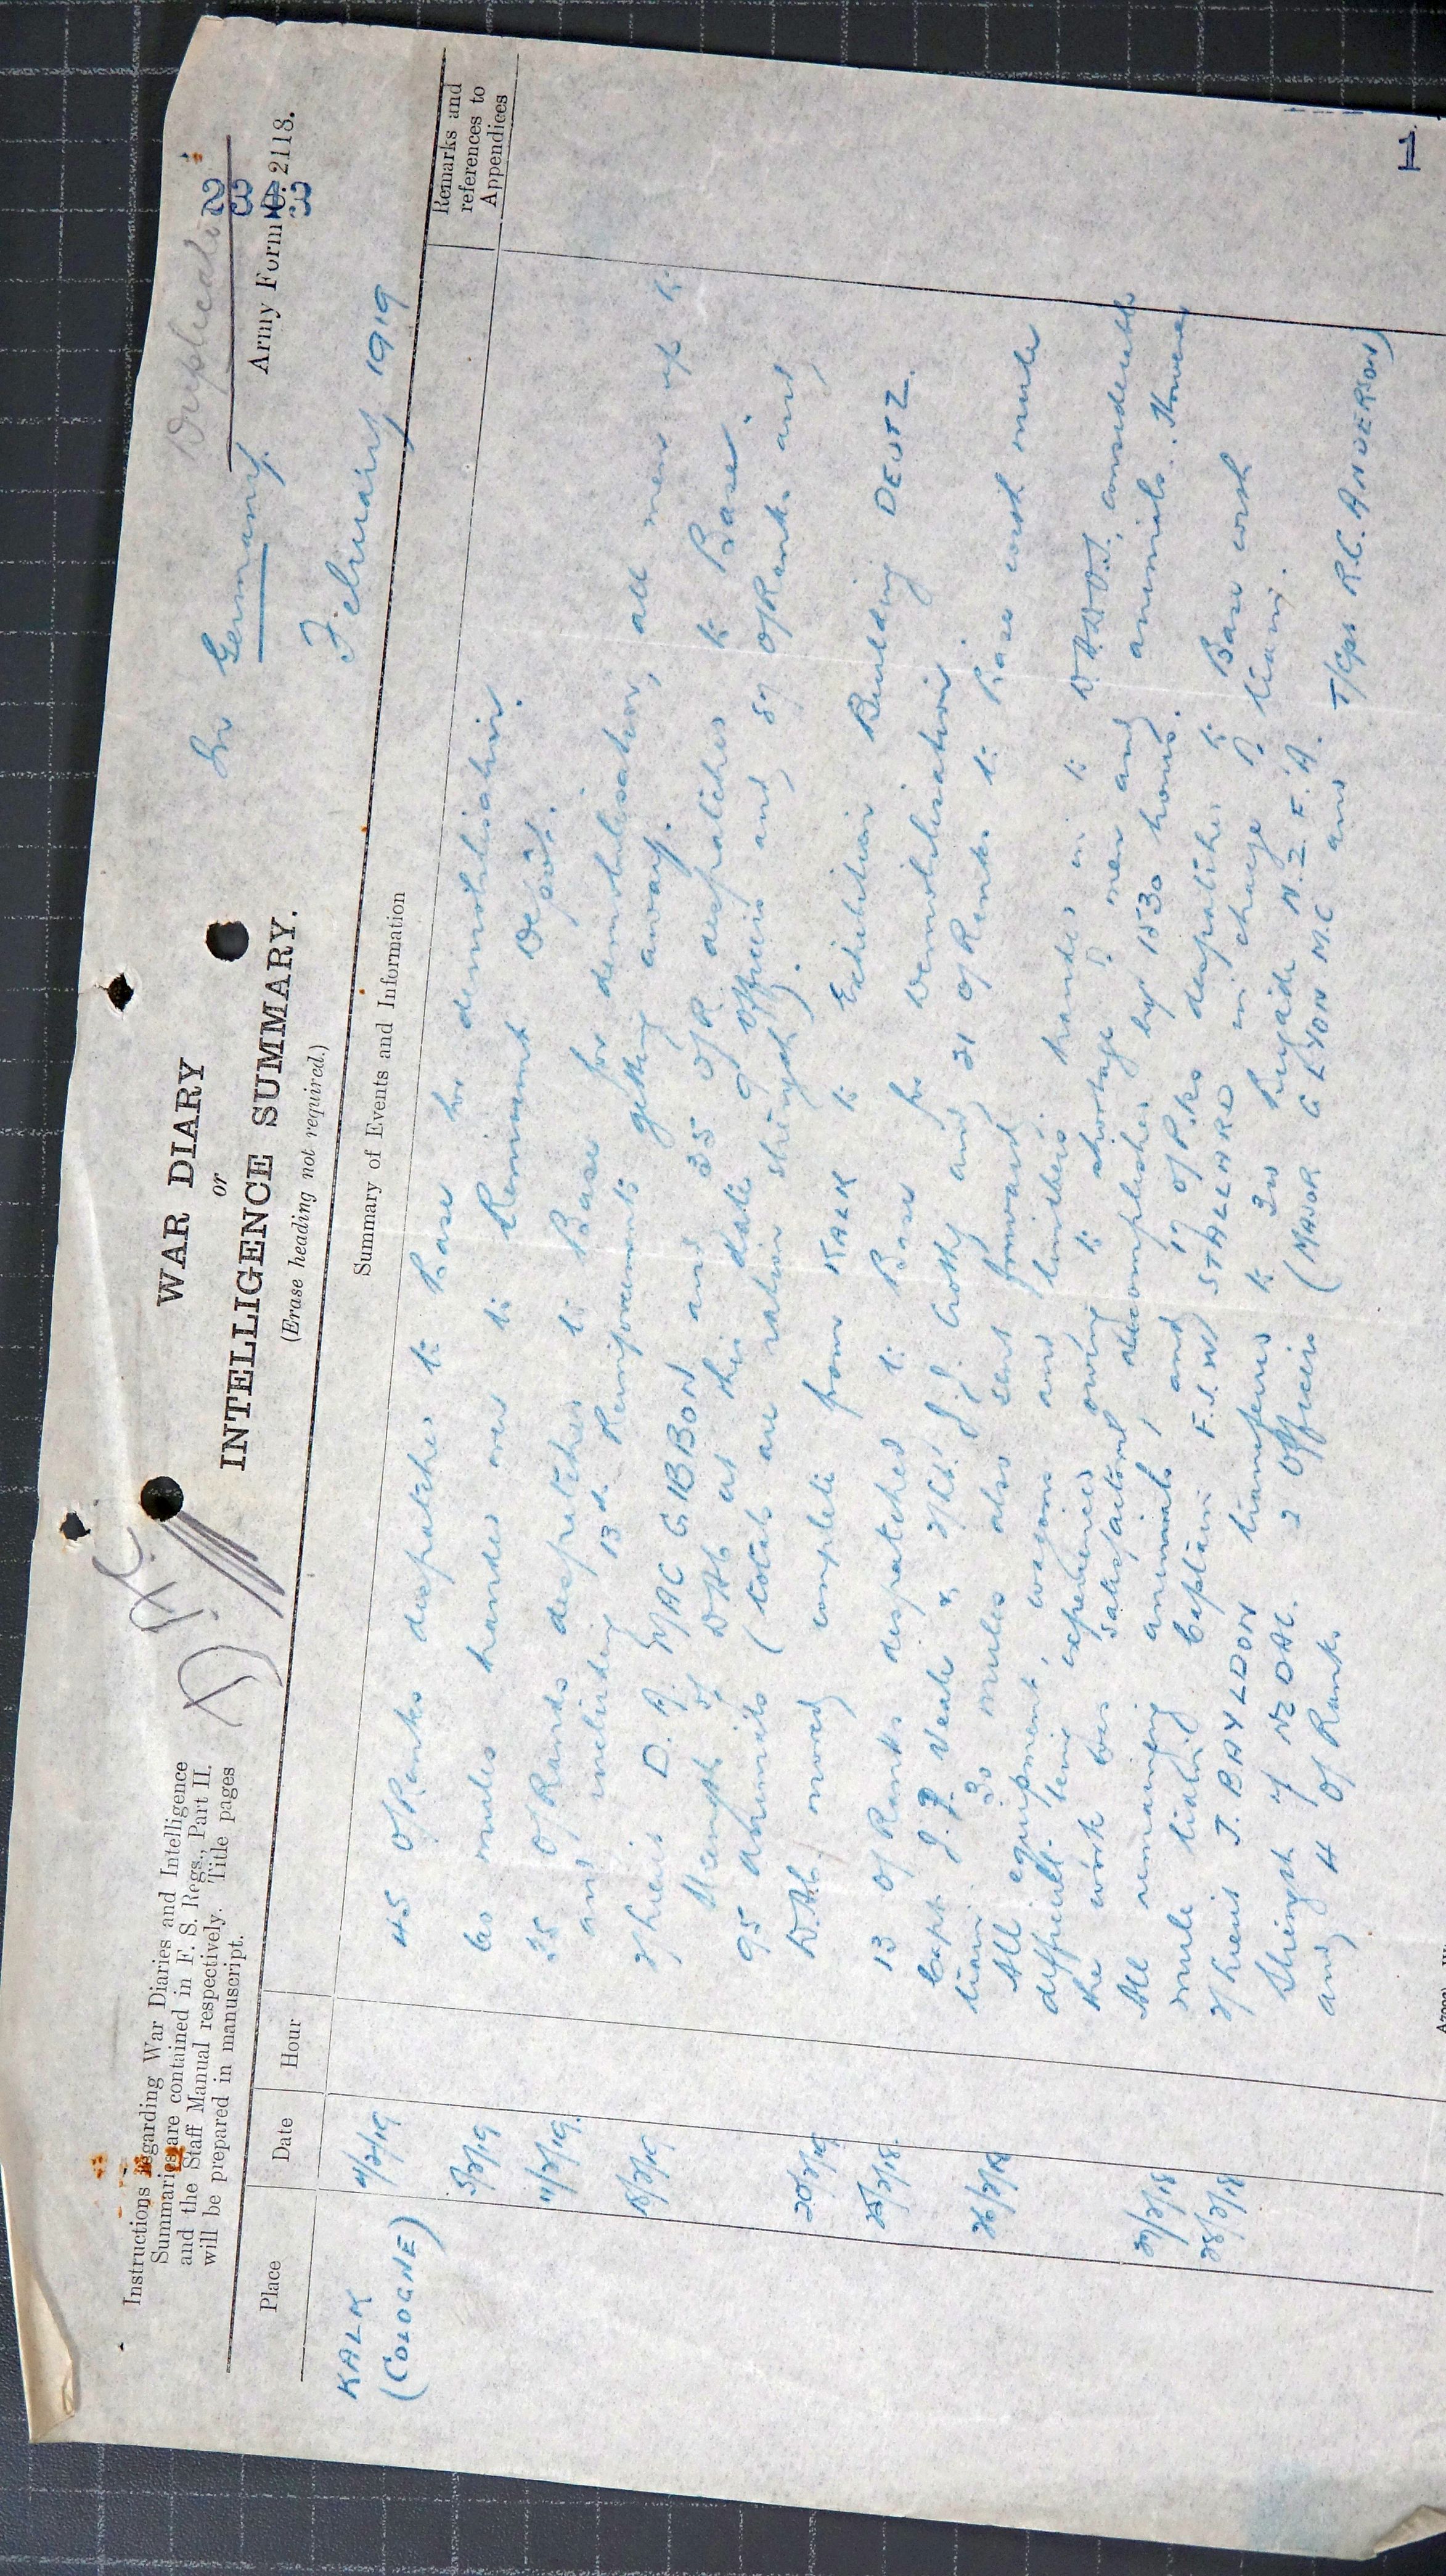 Duplicate
Army Form C. 2118.
2
3
3
In Germany.
February 1919
WAR DIARY
or
INTELLIGENCE SUMMARY.
(Erase heading not required.)
Instructions regarding War Diaries and Intelligence
Summaries are contained in F. S. Regs., Part II.
and the Staff Manual respectively. Title pages
will be prepared in manuscript.
Place Date Hour Summary of Events and Information Remarks and references to Appendices
KALK (COLOGNE) 4/2/19 45 O/Ranks despatched to Base for demobilisation.
5/2/19 60 mules handed over to Remount Depôt.
11/2/19. 35 O/Ranks despatched to Base for demobilisation, all men up to
and including 13th Reinforcements getting away.
18/2/19 2/Lieut D. A. MACGIBBON and 35 O/R despatched to Base.
Strength of DAC at this date 9 Officers and 87 O/Ranks and
95 Animals (totals are ration strength).
20/2/19 D.A.C. moved complete from KALK to Exhibition Building DEUTZ.
25/2/18. 13 O/Ranks despatched to Base for Demobilisation.
Capt J. Veale & 2/Lt. J. J. Crotty and 21 O/Ranks to Base with mule
train. 30 mules also sent forward.
26/2/18 All equipment, wagons and limbers handed in to D.A.D.O.S., considerable
difficulty being experienced owing to shortage of men and animals. However
the work was satisfactorily accomplished by 1530 hours.
27/2/18 All remaining animals, and 17 O/Rks despatched to Base with
mule train, Captain F.J.W. STALLARD in charge of train.
28/2/18 2/Lieut J. BAYLDON transferred to 3rd Brigade N.Z.F.A.
Strength of NZDAC. 2 Officers (MAJOR G LYON M.C and T/Cpt R.C. ANDERSON)
and 4 O/Ranks
1